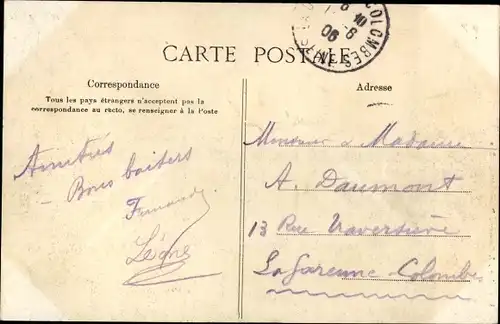 COLOMBES
10
6
06
SEINE
CARTE POSTALE
Correspondance
Tous les pays étrangers n'acceptent pas la
correspondance au recto, se renseigner à la Poste
Amitiés
- Bons baisers
Fernande
Adresse
Monsieur & Madame
A. Daumont
13 Rue Traversière
La Garenne-Colombe